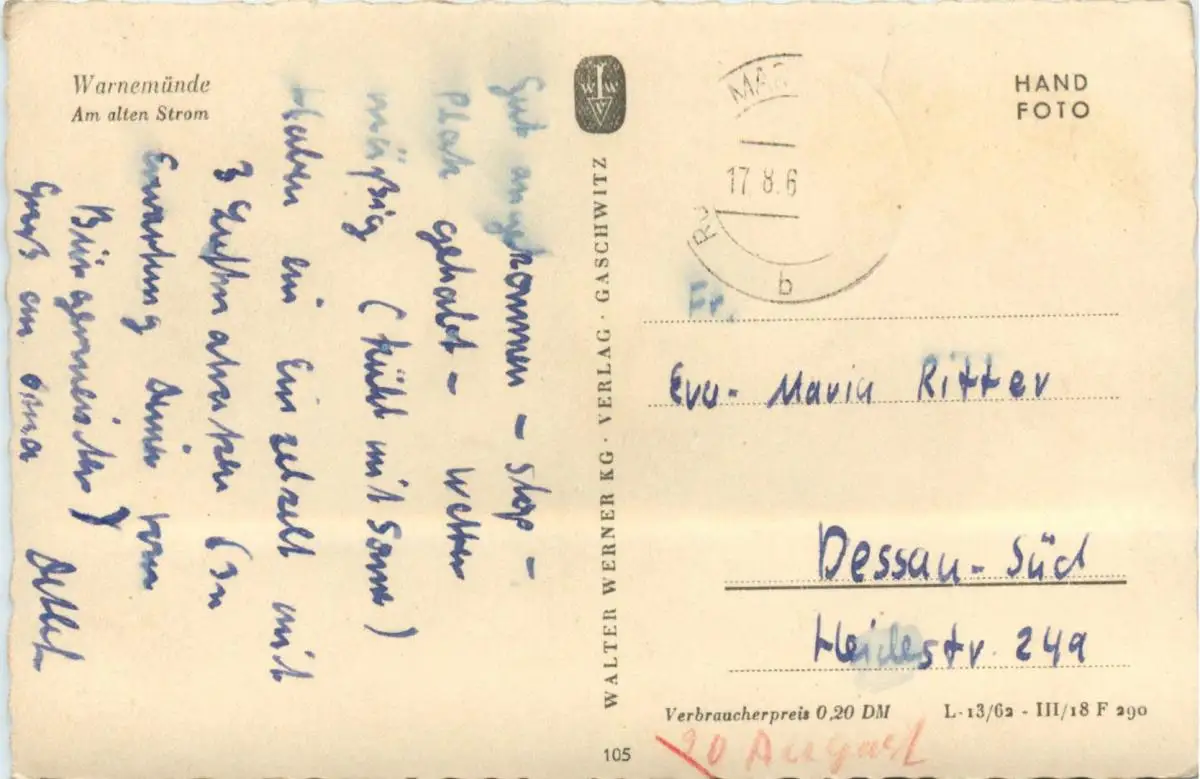 Warnemünde
Am alten Strom
Gut angekommen - Stop -
Platz gehabt - Wetter
mäßig (kühl mit Sonne)
Haben ein Einzelzelt mit
3 Luftmatratzen (In
Erwartung
Bürgermeister)
Gruß an Oma Detlef
WALTER WERNER KG · VERLAG · GASCHWITZ
105
HAND
FOTO
17 8. 6
b
Fr.
Eva-Maria Ritter
Dessau-Süd
Heidestr. 249
Verbraucherpreis 0,20 DM
L-13/62 - III/18 F 290
20 August